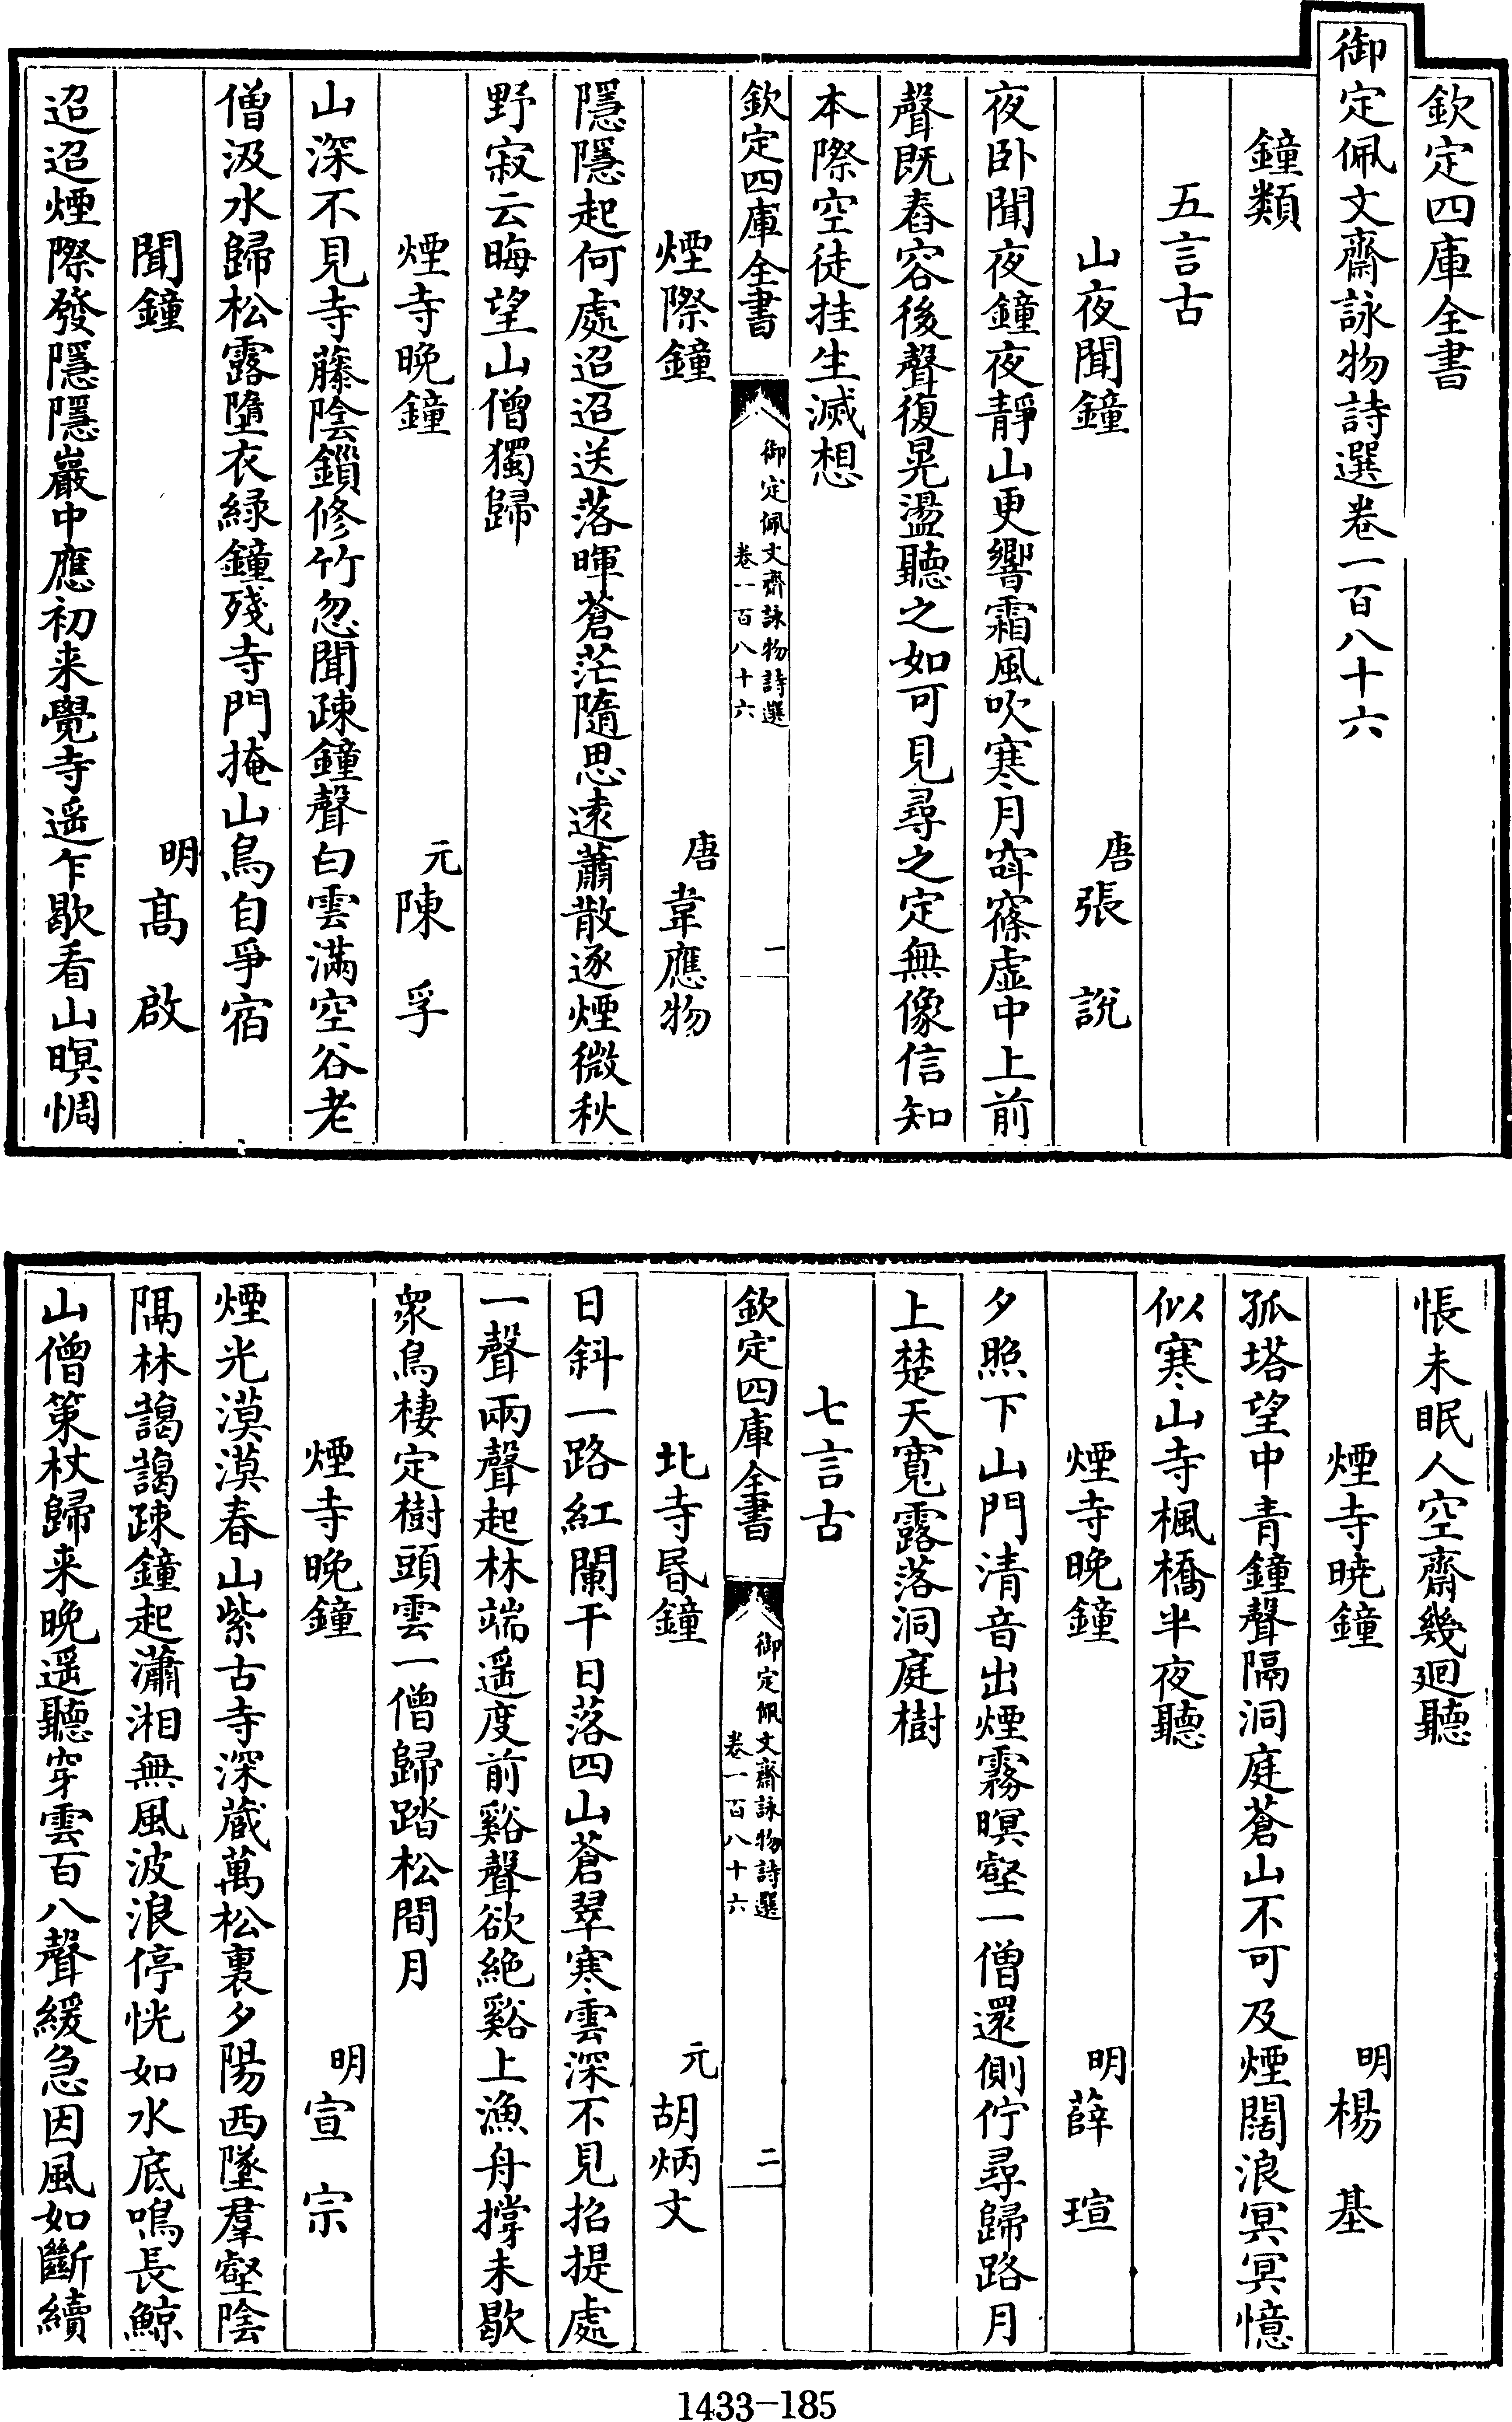 欽定四庫全書
御定佩文齋詠物詩選卷一百八十六
鐘類
五言古
山夜聞鐘 唐張説
夜卧聞夜鐘夜靜山更響霜風吹寒月窅窱虚中上前
聲既舂容後聲復晃盪聽之如可見尋之定無像信知
本際空徒挂生滅想
欽定四庫全書 御定佩文齋詠物詩選 卷一百八十六 一
煙際鐘 唐韋應物
隱隱起何處迢迢送落暉蒼茫隨思遠蕭散逐煙微秋
野寂云晦望山僧獨歸
煙寺晚鐘 元陳孚
山深不見寺藤陰鎖修竹忽聞疎鐘聲白雲滿空谷老
僧汲水歸松露墮衣緑鐘殘寺門掩山鳥自爭宿
聞鐘 明髙啟
迢迢煙際發隱隱巖中應初来覺寺遥乍歇看山暝惆
悵未眠人空齋幾廻聽
煙寺曉鐘 明楊基
孤塔望中青鐘聲隔洞庭蒼山不可及煙闊浪冥冥憶
似寒山寺楓橋半夜聽
煙寺晚鐘 明薛瑄
夕照下山門清音出煙霧暝壑一僧還側佇尋歸路月
上楚天寛露落洞庭樹
七言古
欽定四庫全書 御定佩文齋詠物詩選 卷一百八十六 二
北寺昏鐘 元胡炳文
日斜一路紅闌干日落四山蒼翠寒雲深不見招提處
一聲兩聲起林端遥度前谿聲欲絶谿上漁舟撑未歇
衆鳥棲定樹頭雲一僧歸踏松間月
煙寺晚鐘 明宣宗
煙光漠漠春山紫古寺深蔵萬松裏夕陽西墜羣壑陰
隔林藹藹疎鐘起瀟湘無風波浪停恍如水底鳴長鯨
山僧策杖歸来晚遥聽穿雲百八聲緩急因風如斷續
1433-185